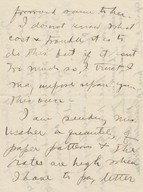 forward same to her.
I do not know what
cost & trouble it is to
do this but if it isnt
too much, so, I trust I
may impose upon you
this once
I am sending Mrs.
Usher a quantity of
paper pattern & the
rates are high when
I have to pay letter